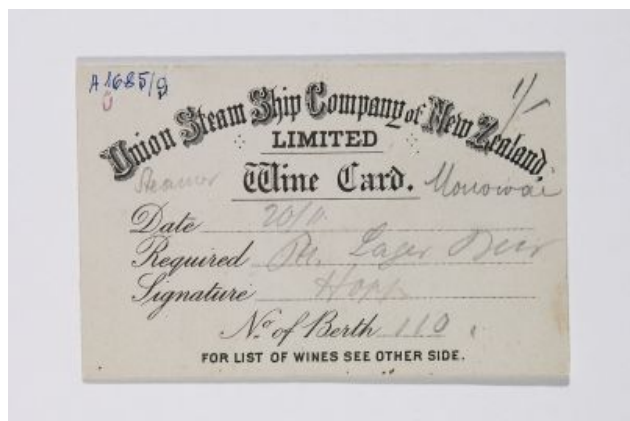 A1685/9
1/-
Union Steam Ship Company of New Zealand,
LIMITED
Steamer Wine Card. Monowai
Date 20/11
Required Lager Beer
Signature Hopp
No. of Berth 110
FOR LIST OF WINES SEE OTHER SIDE.